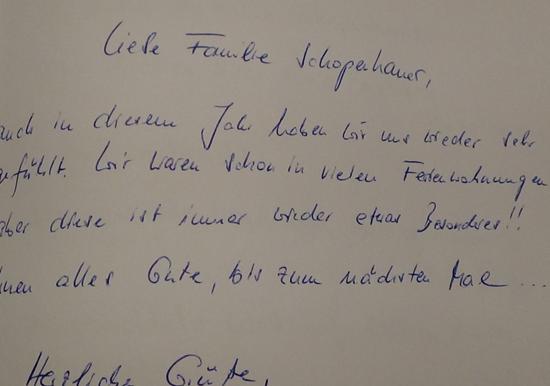 Liebe Familie Schopenhauer,
auch in diesem Jahr haben wir uns wieder sehr
gefühlt. Wir waren schon in vielen Ferienwohnungen
aber diese ist immer wieder etwas Besonderes!!
hnen alles Gute, bis zum nächsten Mal ...
Herzliche Grüße,